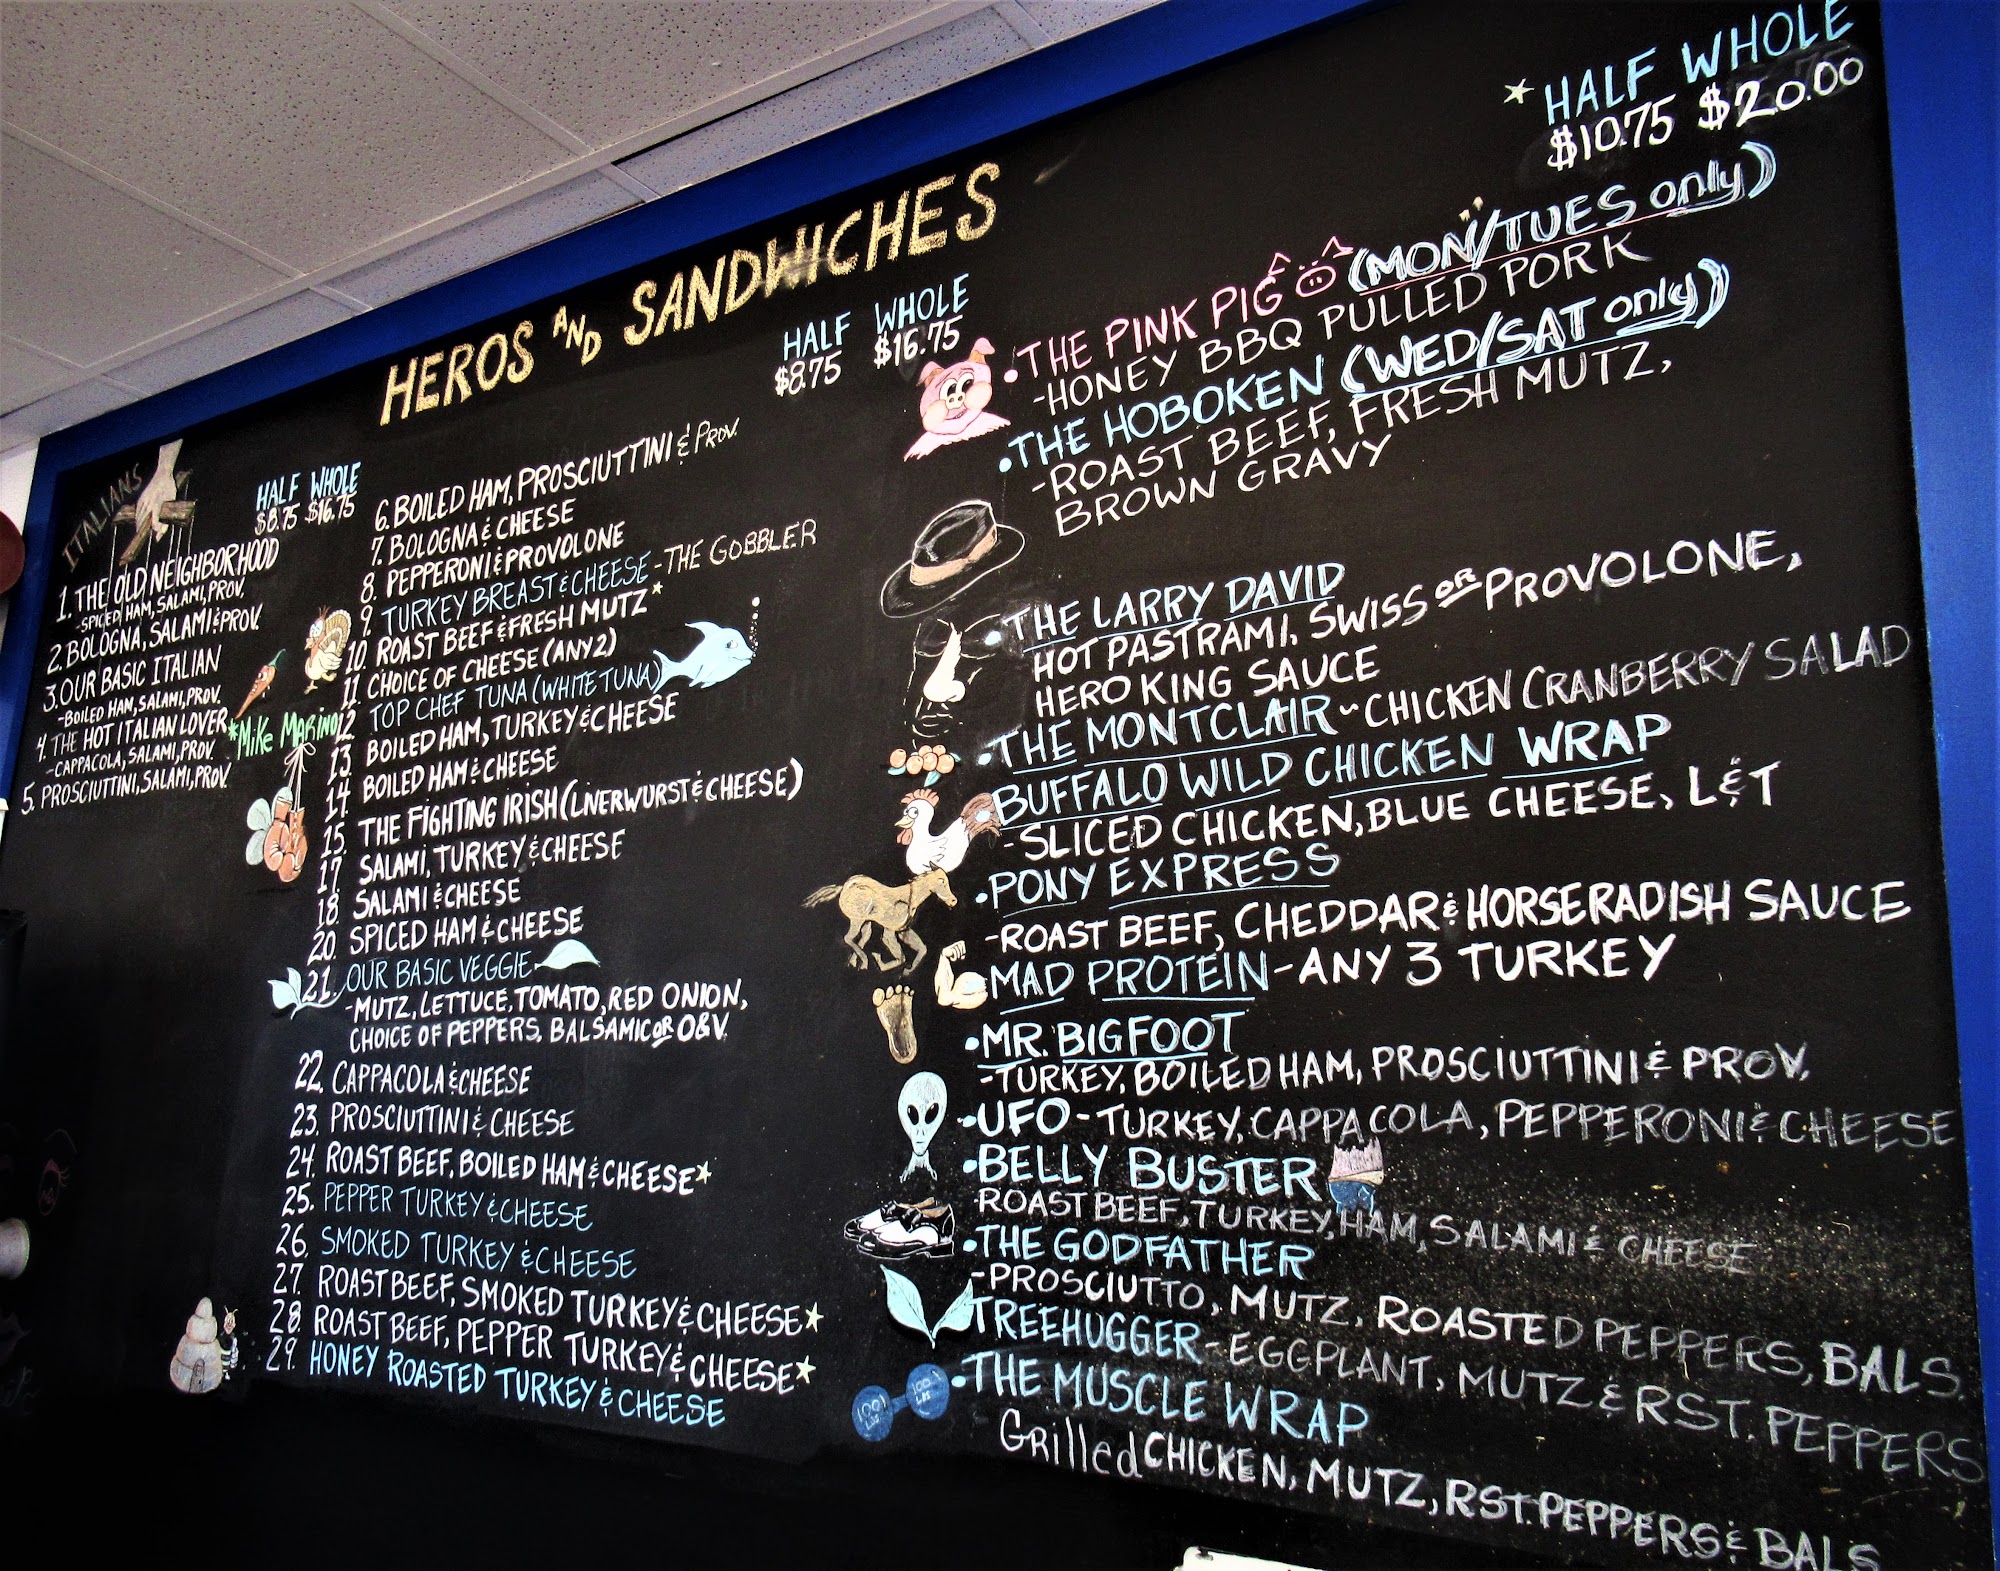 HEROS AND SANDWICHES
ITALIANS
HALF WHOLE
$8.75 $16.75
1. THE OLD NEIGHBORHOOD
-SPICED HAM, SALAMI, PROV.
2. BOLOGNA, SALAMI & PROV.
3. OUR BASIC ITALIAN
-BOILED HAM, SALAMI, PROV.
4. THE HOT ITALIAN LOVER
-CAPPACOLA, SALAMI, PROV.
5. PROSCIUTTINI, SALAMI, PROV.
*MIKE MARINO
HALF WHOLE
$8.75 $16.75
6. BOILED HAM, PROSCIUTTINI & PROV.
7. BOLOGNA & CHEESE
8. PEPPERONI & PROVOLONE
9. TURKEY BREAST & CHEESE - THE GOBBLER
10. ROAST BEEF & FRESH MUTZ*
11. CHOICE OF CHEESE (ANY 2)
12. TOP CHEF TUNA (WHITE TUNA)
13. BOILED HAM, TURKEY & CHEESE
14. BOILED HAM & CHEESE
15. THE FIGHTING IRISH (LIVERWURST & CHEESE)
17. SALAMI, TURKEY & CHEESE
18. SALAMI & CHEESE
20. SPICED HAM & CHEESE
21. OUR BASIC VEGGIE
-MUTZ, LETTUCE, TOMATO, RED ONION,
CHOICE OF PEPPERS, BALSAMIC OR O&V.
22. CAPPACOLA & CHEESE
23. PROSCIUTTINI & CHEESE
24. ROAST BEEF, BOILED HAM & CHEESE*
25. PEPPER TURKEY & CHEESE
26. SMOKED TURKEY & CHEESE
27. ROAST BEEF, SMOKED TURKEY & CHEESE*
28. ROAST BEEF, PEPPER TURKEY & CHEESE*
29. HONEY ROASTED TURKEY & CHEESE
*HALF WHOLE
$10.75 $20.00
•THE PINK PIG (MON/TUES only)
-HONEY BBQ PULLED PORK
•THE HOBOKEN (WED/SAT only)
-ROAST BEEF, FRESH MUTZ,
BROWN GRAVY
•THE LARRY DAVID
HOT PASTRAMI, SWISS OR PROVOLONE,
HERO KING SAUCE
•THE MONTCLAIR~CHICKEN CRANBERRY SALAD
BUFFALO WILD CHICKEN WRAP
-SLICED CHICKEN, BLUE CHEESE, L&T
•PONY EXPRESS
-ROAST BEEF, CHEDDAR & HORSERADISH SAUCE
MAD PROTEIN-ANY 3 TURKEY
•MR. BIGFOOT
-TURKEY, BOILED HAM, PROSCIUTTINI & PROV.
•UFO-TURKEY, CAPPACOLA, PEPPERONI & CHEESE
•BELLY BUSTER
-ROAST BEEF, TURKEY, HAM, SALAMI & CHEESE
•THE GODFATHER
-PROSCIUTTO, MUTZ, ROASTED PEPPERS, BALS.
TREEHUGGER-EGGPLANT, MUTZ & RST. PEPPERS
•THE MUSCLE WRAP
GRilled CHICKEN, MUTZ, RST. PEPPERS & BALS
100 LBS 100 LBS